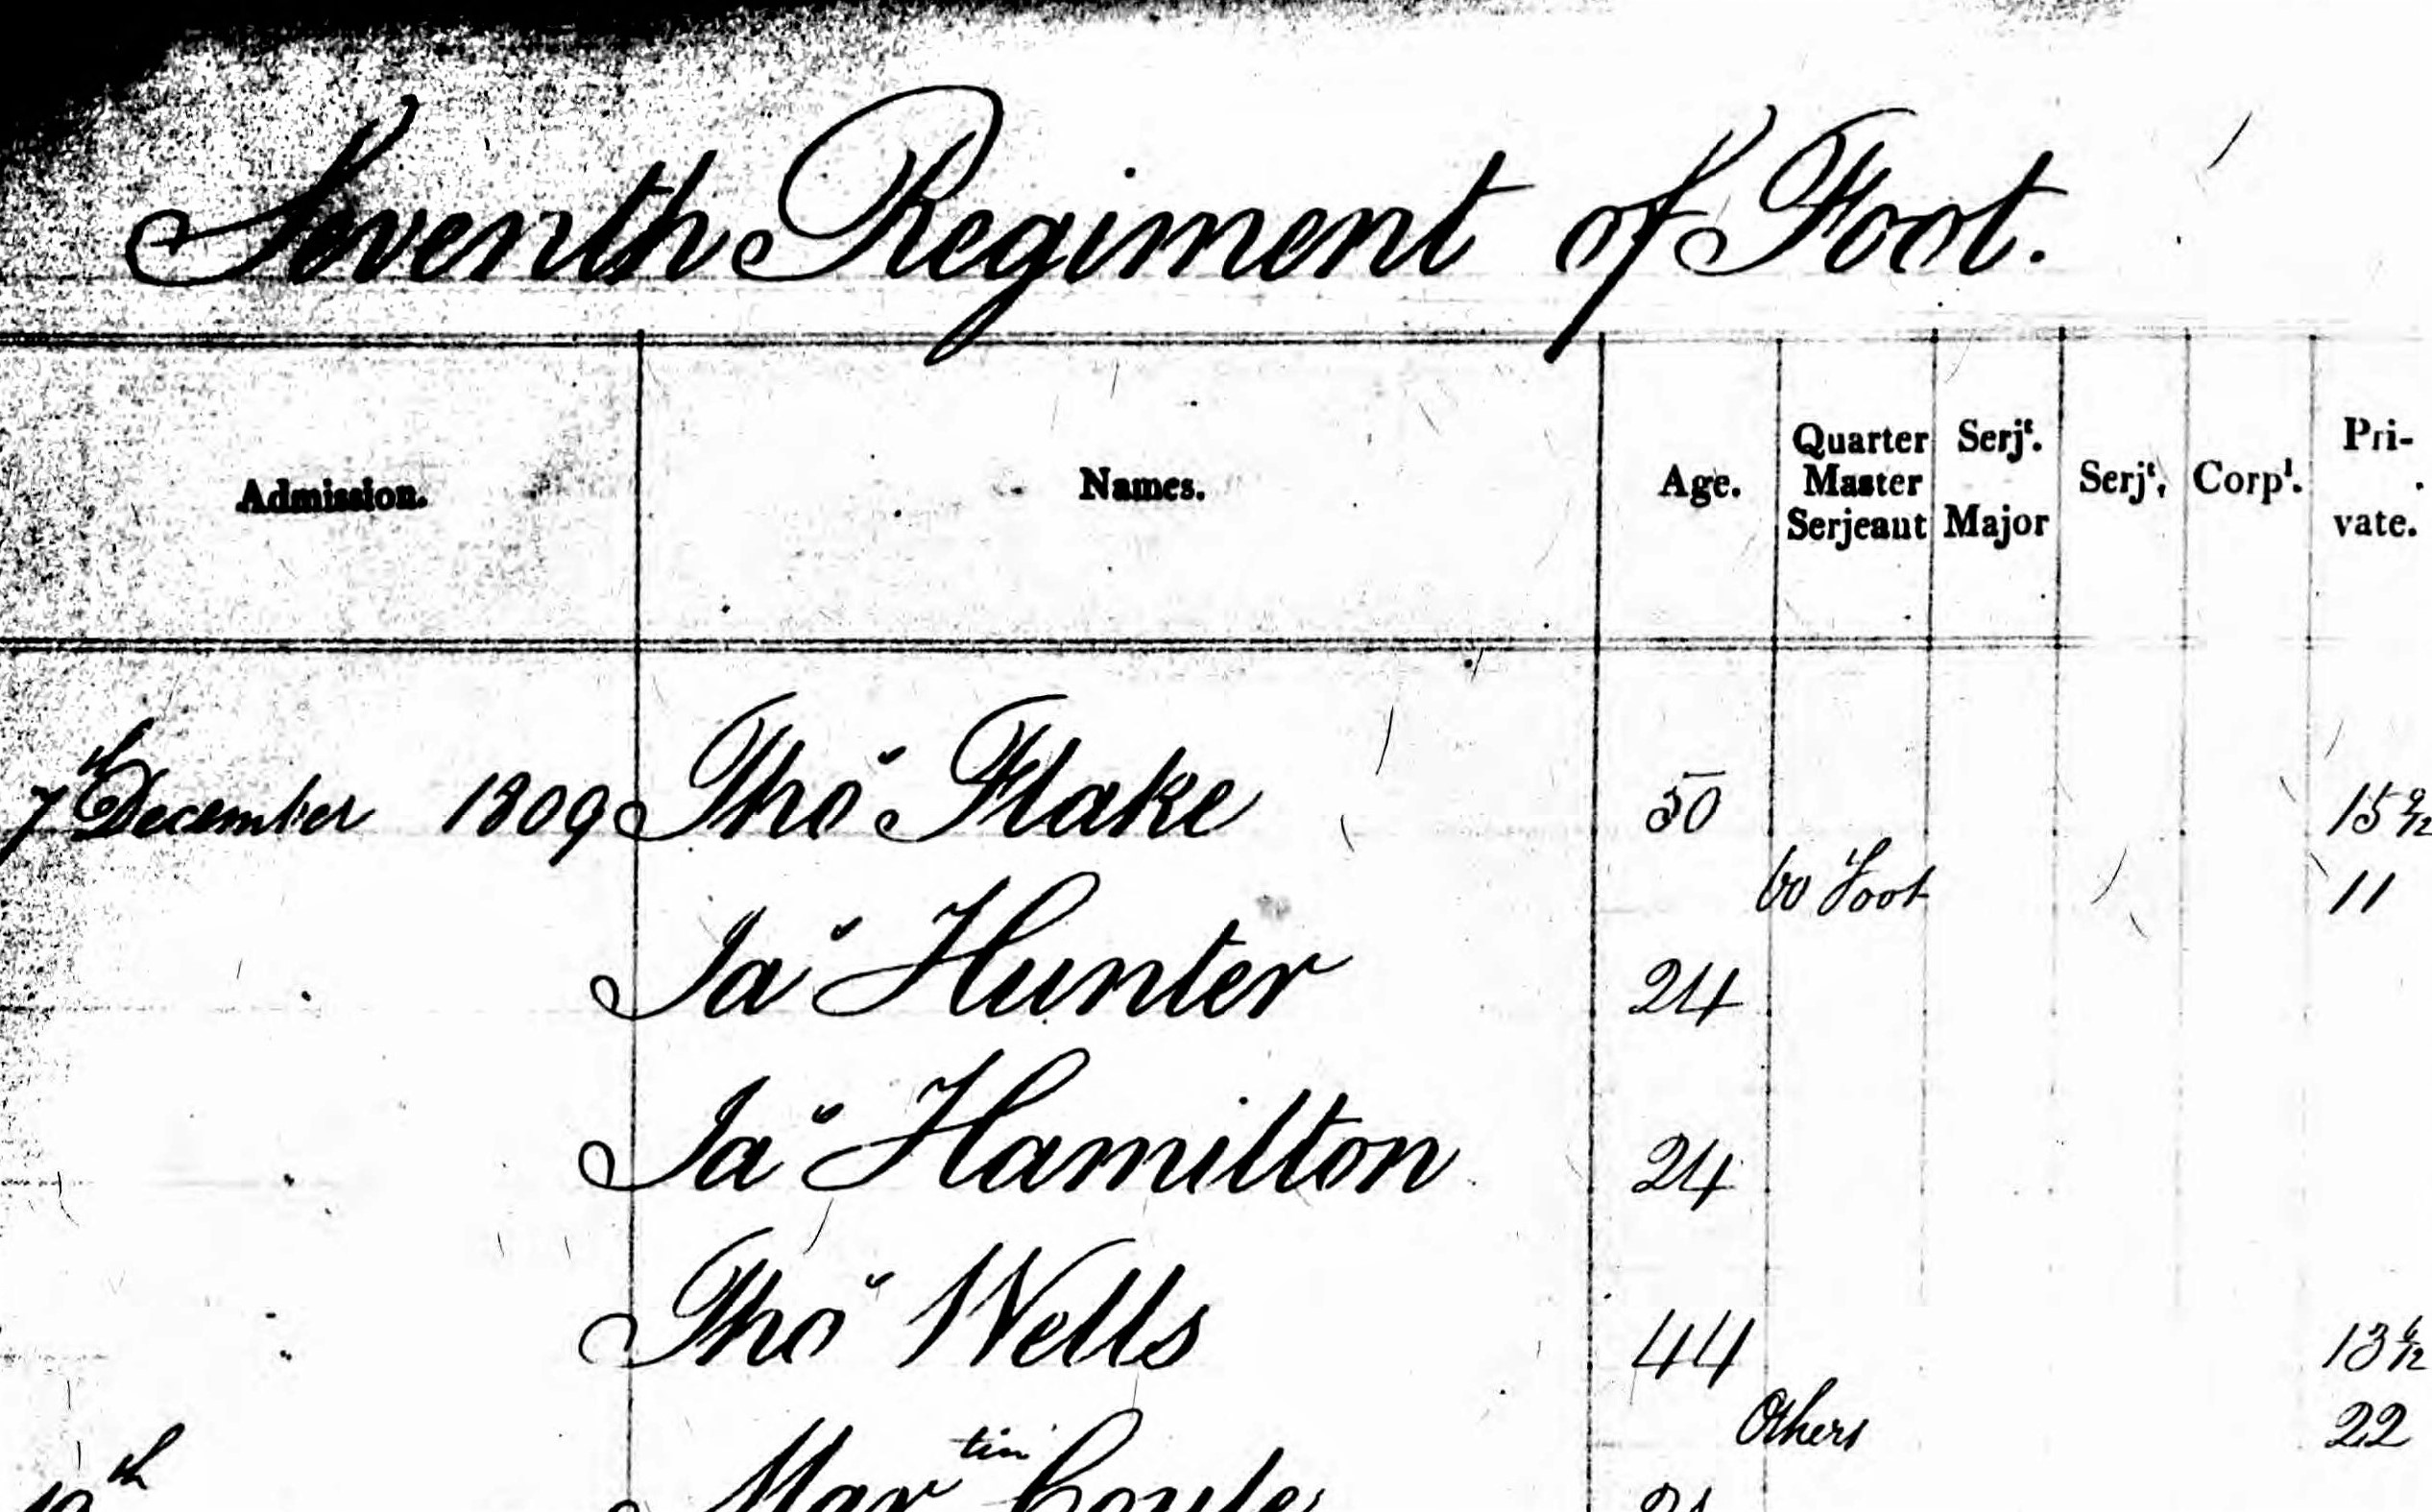 Seventh Regiment of Foot.
Admission. Names. Age. Quarter Master Serjeant Serjt. Major Serjt. Corpl. Pri- vate.
7th December 1809 Thos Flake 50 15 9/12
60 Foot 11
Jas Hunter 24
Jas Hamilton 24
Thos Wells 44 13 6/12
Others 22
th Martin